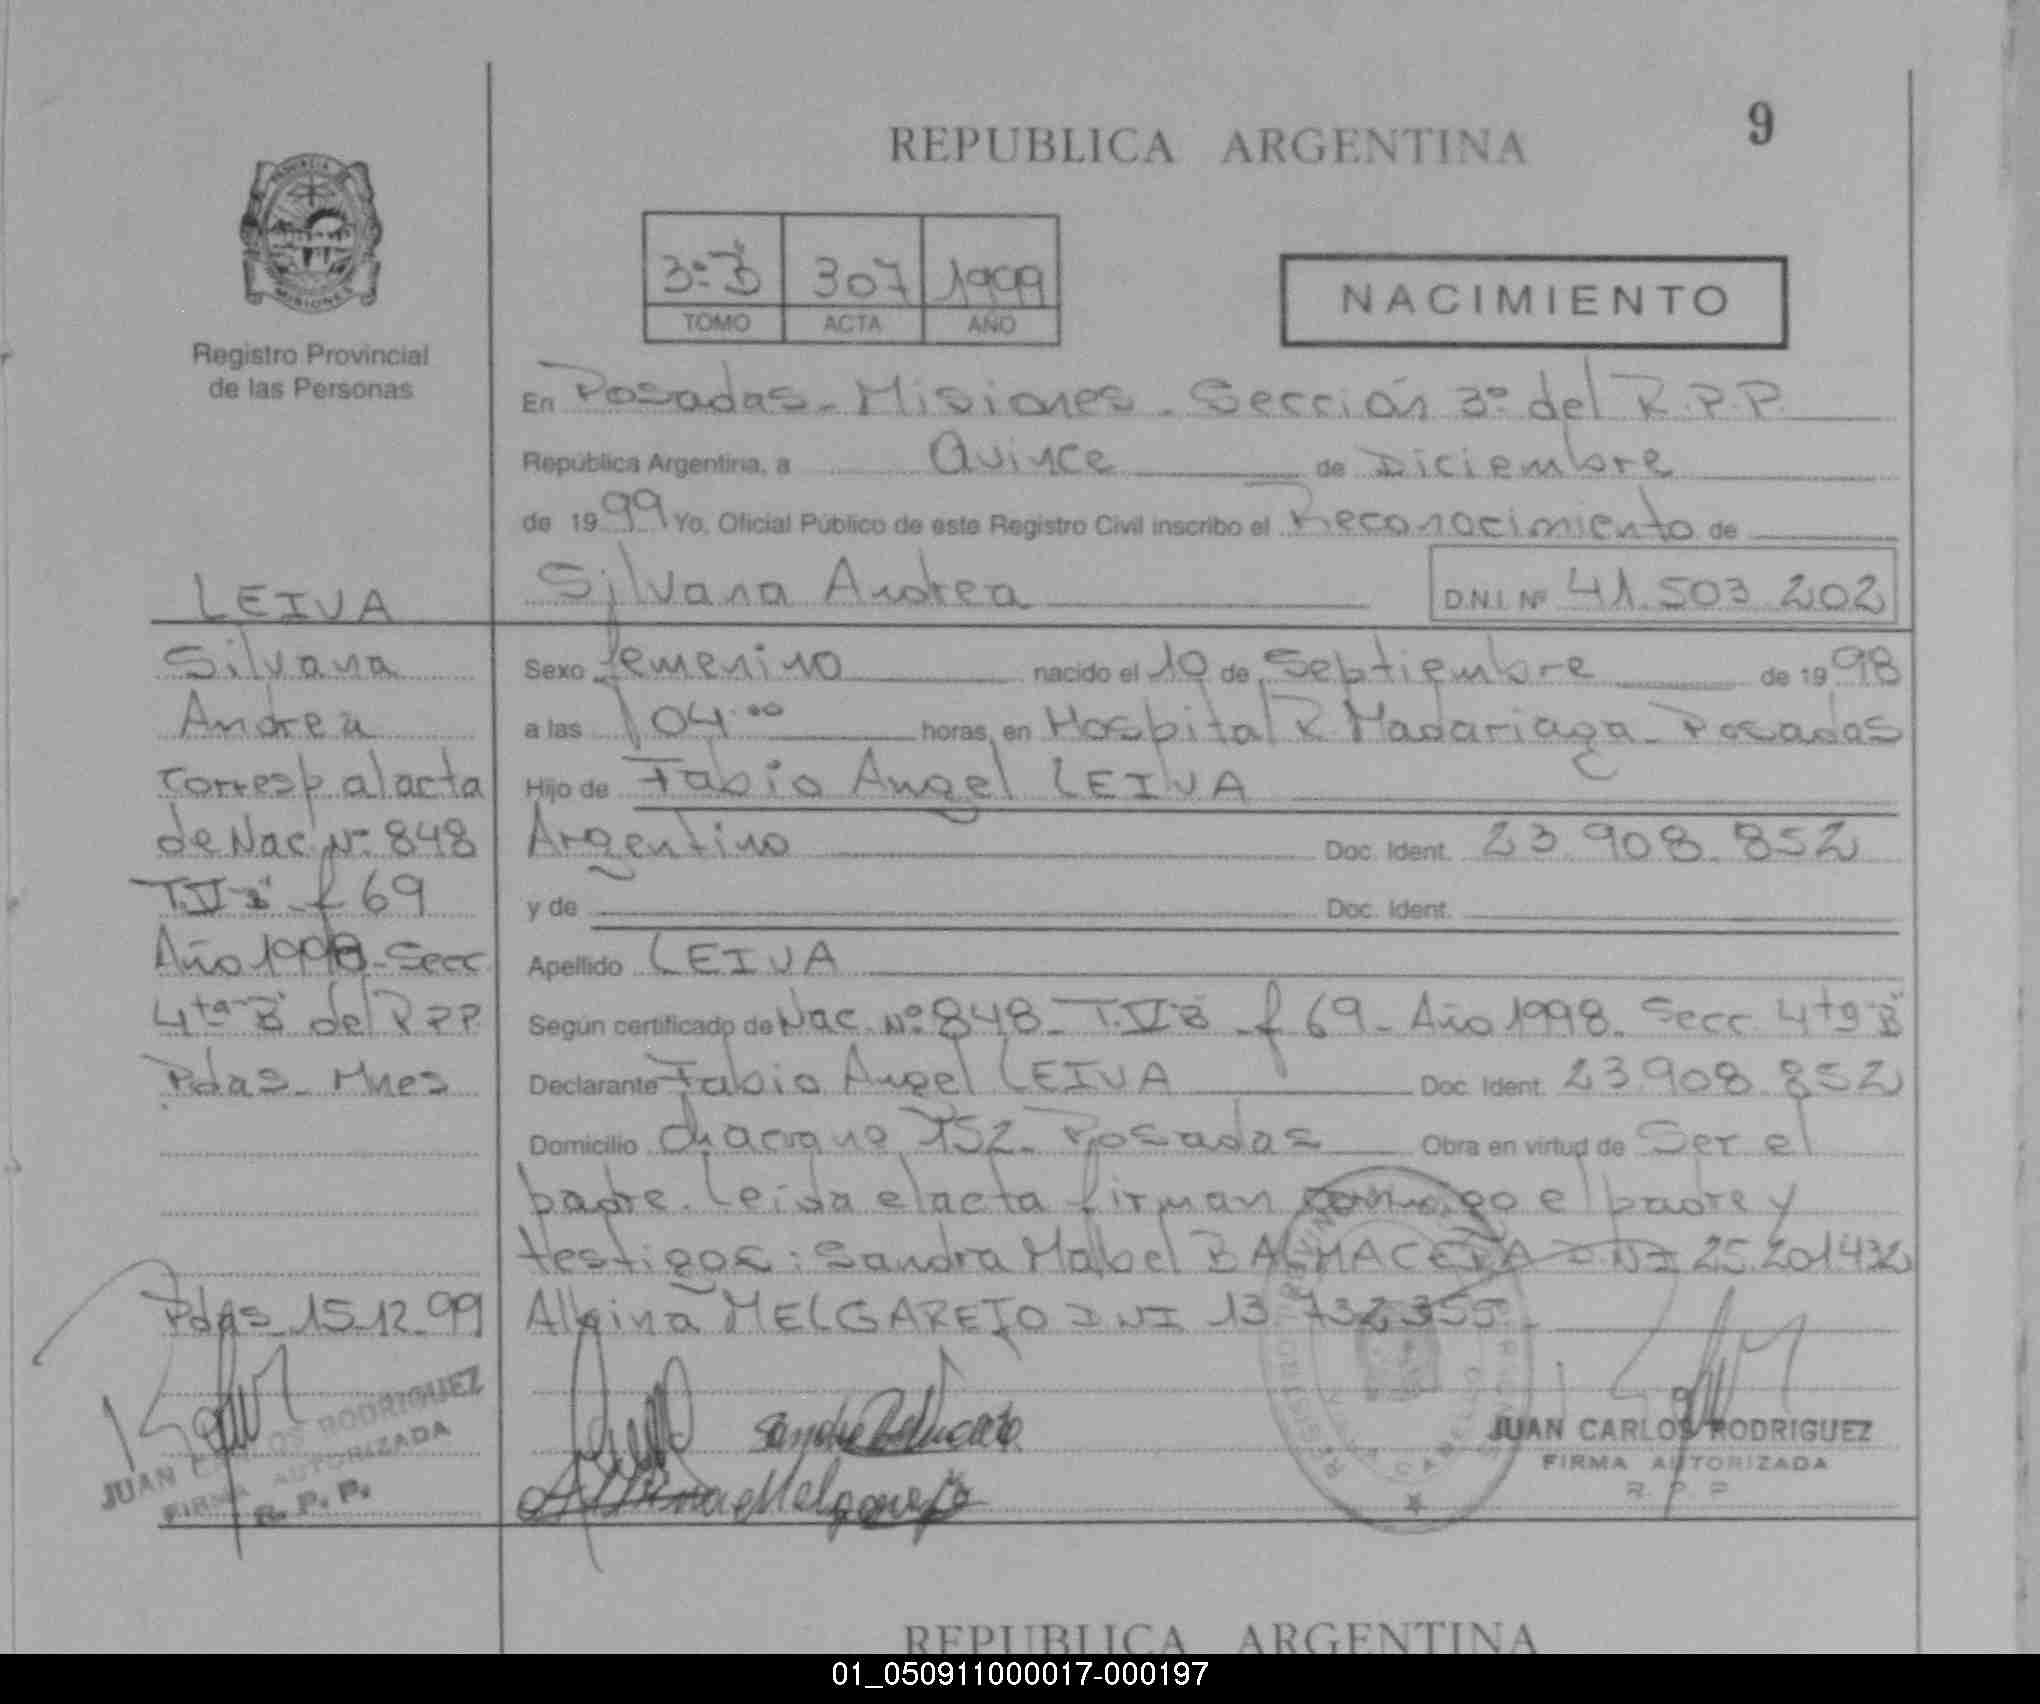 9
REPUBLICA ARGENTINA
PROVINCIA
MISIONES
Registro Provincial
de las Personas
3º "B" 307 1999
TOMO ACTA AÑO
NACIMIENTO
En Posadas - Misiones - Sección 3º del R.P.P.
República Argentina, a Quince de Diciembre
de 1999 Yo, Oficial Público de este Registro Civil inscribo el Reconocimiento de
Silvana Andrea D.N.I. Nº 41.503.202
LEIVA
Silvana
Andrea
corresp al acta
de Nac. Nº 848
T.V "B" - f 69
Año 1998 - Secc
4ta "B" del RPP
Pdas - Mnes
Pdas 15-12-99
JUAN CARLOS RODRIGUEZ
FIRMA AUTORIZADA
R. P. P.
Sexo femenino nacido el 10 de Septiembre de 1998
a las 04.00 horas, en Hospital R. Madariaga - Posadas
Hijo de Fabio Angel LEIVA
Argentino Doc. Ident. 23.908.852
y de Doc. Ident.
Apellido LEIVA
Según certificado de Nac. Nº 848 - T.V "B" - f 69 - Año 1998. Secc. 4ta "B"
Declarante Fabio Angel LEIVA Doc. Ident. 23.908.852
Domicilio 152 - Posadas Obra en virtud de Ser el
padre. Leida el acta firman conmigo el padre y
testigos: Sandra Mabel BALMACEDA D.N.I 25.201.432
Albina MELGAREJO DNI 13.732.355
JUAN CARLOS RODRIGUEZ
FIRMA AUTORIZADA
R. P. P.
REPUBLICA ARGENTINA
01_050911000017-000197